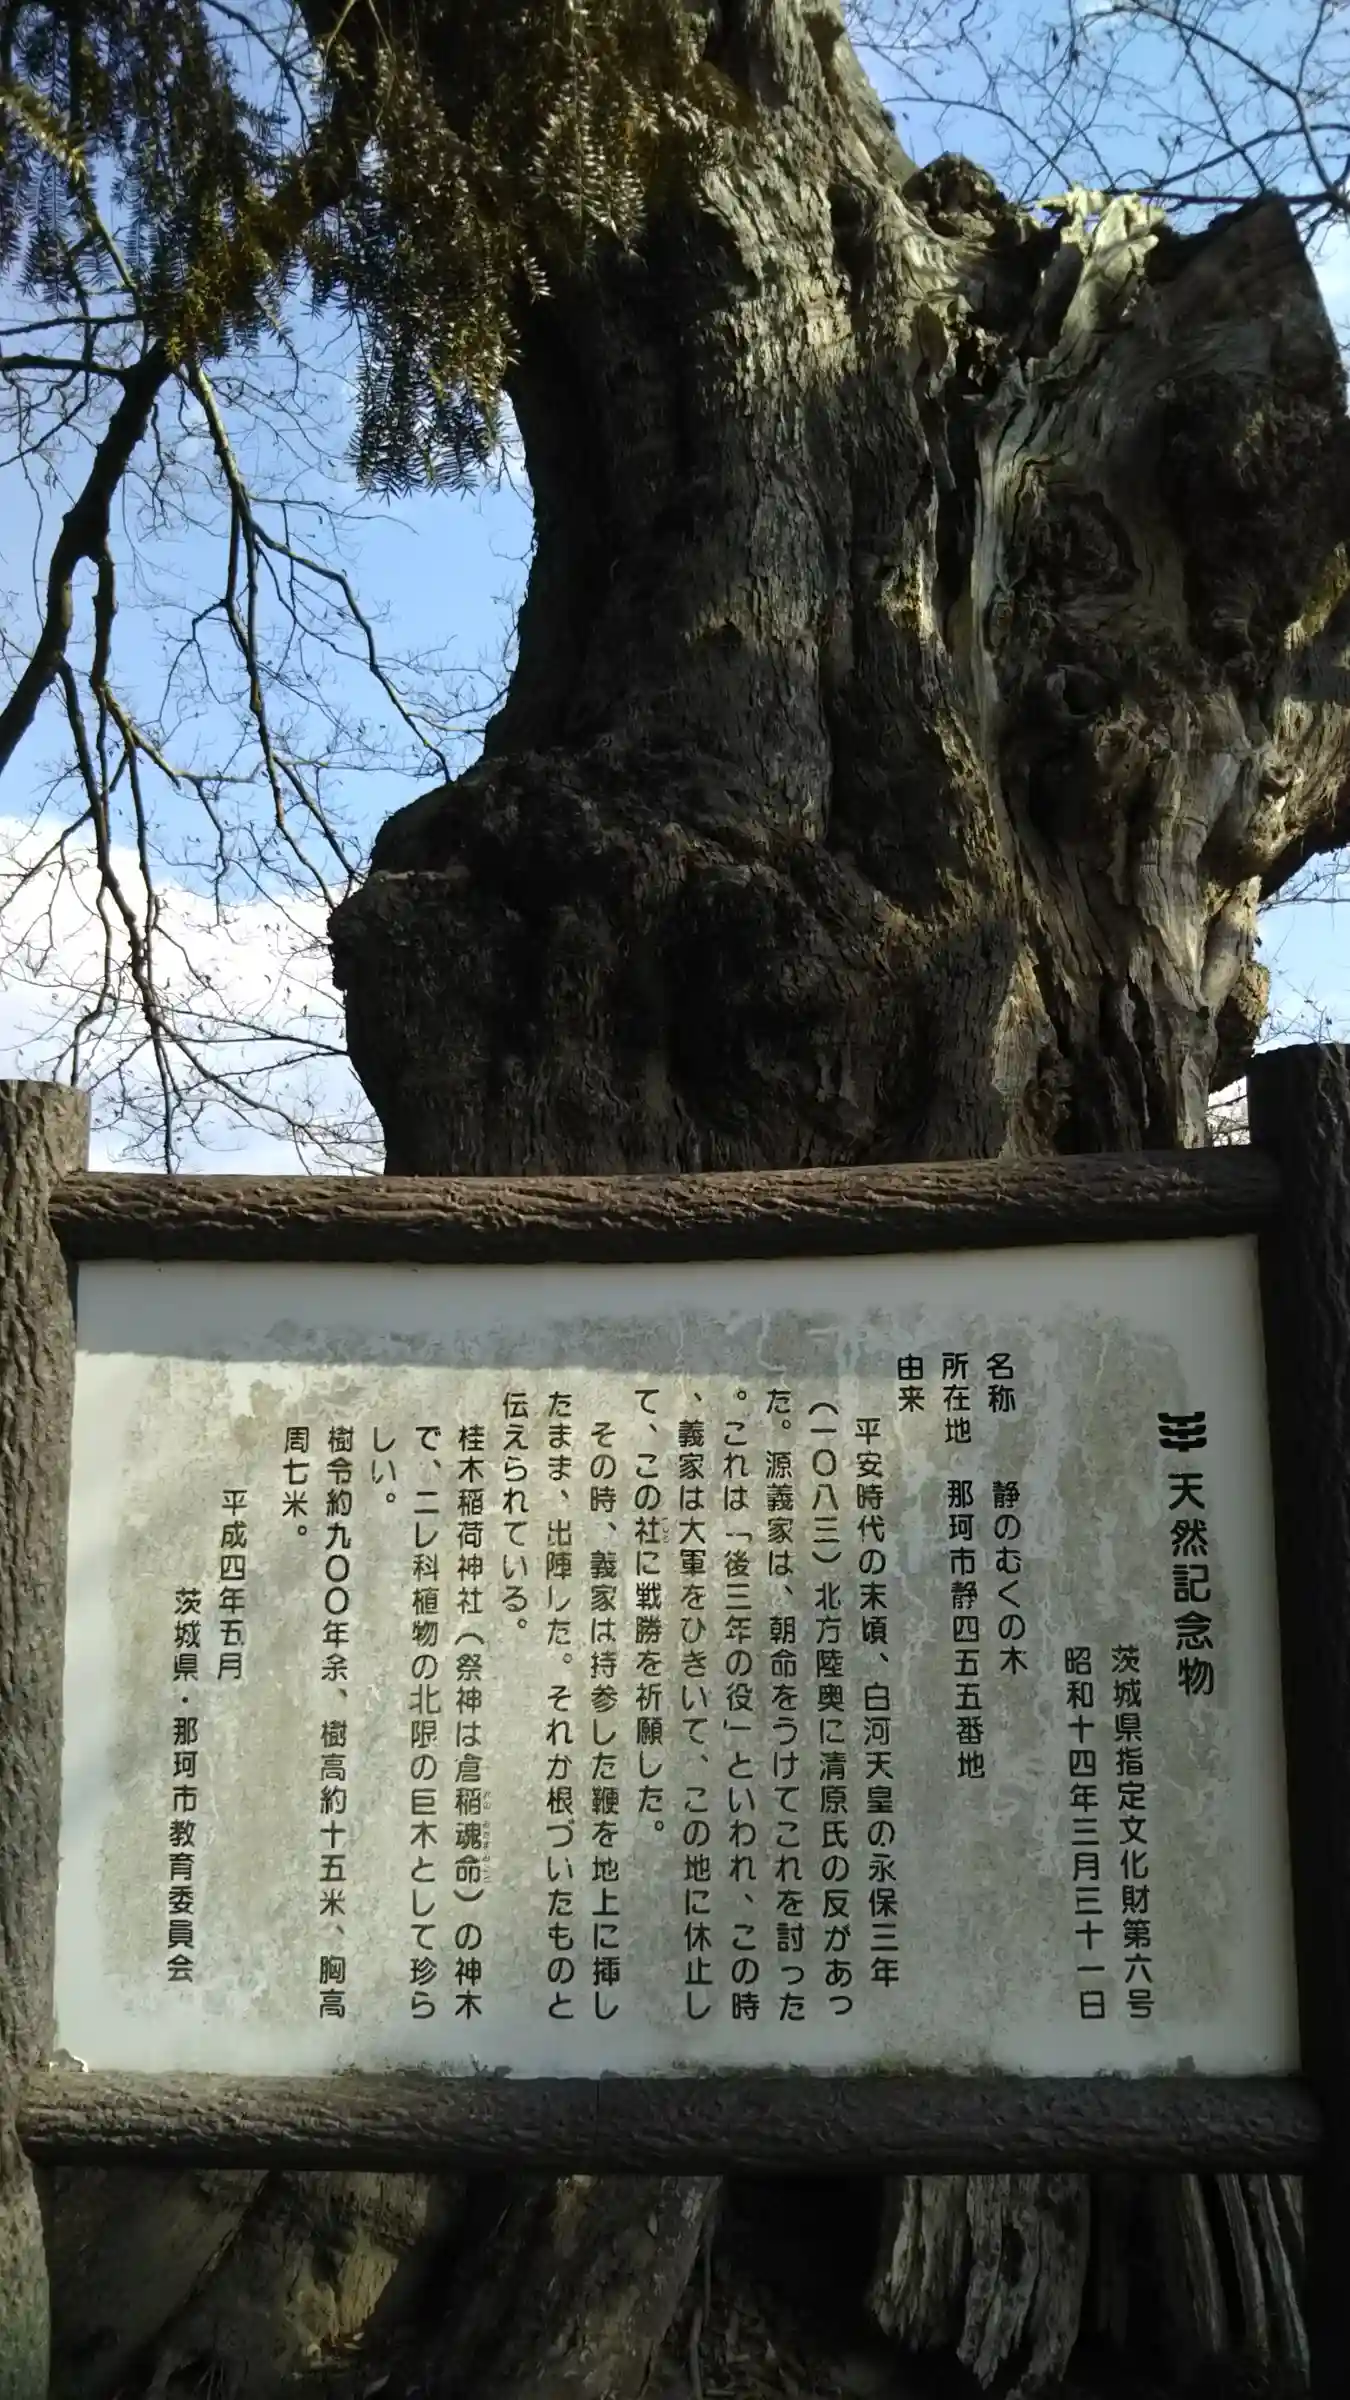 天然記念物
茨城県指定文化財第六号
昭和十四年三月三十一日
名称　静のむくの木
所在地　那珂市静四五五番地
由来
平安時代の末頃、白河天皇の永保三年
(一〇八三)北方陸奥に清原氏の反があっ
た。源義家は、朝命をうけてこれを討った
。これは「後三年の役」といわれ、この時
、義家は大軍をひきいて、この地に休止し
て、この社に戦勝を祈願した。
その時、義家は持参した鞭を地上に挿し
たまま、出陣した。それが根づいたものと
伝えられている。
桂木稲荷神社(祭神は倉稲魂命)の神木
で、ニレ科植物の北限の巨木として珍ら
しい。
樹令約九〇〇年余、樹高約十五米、胸高
周七米。
平成四年五月
茨城県・那珂市教育委員会